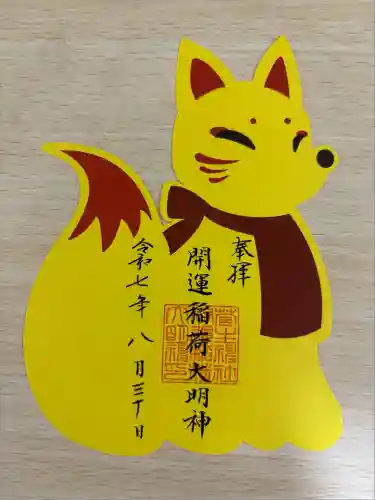 奉拝
開運稲荷大明神
令和七年 八月三十日